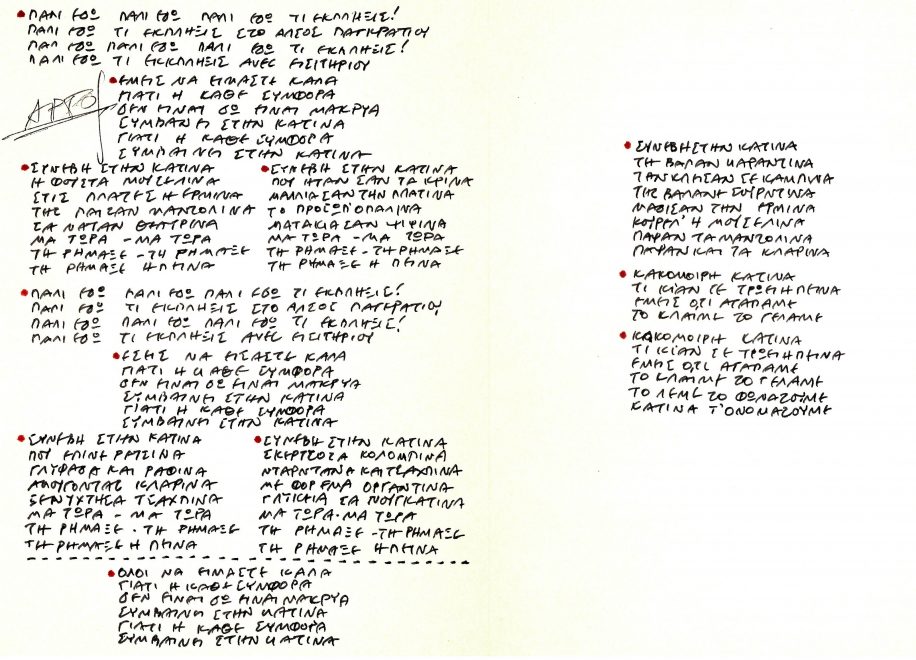 • ΠΑΛΙ ΕΔΩ ΠΑΛΙ ΕΔΩ ΠΑΛΙ ΕΔΩ ΤΙ ΕΚΠΛΗΞΕΙΣ!
ΠΑΛΙ ΕΔΩ ΤΙ ΕΚΠΛΗΞΕΙΣ ΣΤΟ ΑΛΣΟΣ ΠΑΓΚΡΑΤΙΟΥ
ΠΑΛΙ ΕΔΩ ΠΑΛΙ ΕΔΩ ΠΑΛΙ ΕΔΩ ΤΙ ΕΚΠΛΗΞΕΙΣ!
ΠΑΛΙ ΕΔΩ ΤΙ ΕΚΠΛΗΞΕΙΣ ΑΝΕΥ ΕΙΣΙΤΗΡΙΟΥ
ΑΡΓΟ
• ΕΜΕΙΣ ΝΑ ΕΙΜΑΣΤΕ ΚΑΛΑ
ΓΙΑΤΙ Η ΚΑΘΕ ΣΥΜΦΟΡΑ
ΔΕΝ ΕΙΝΑΙ ΔΩ ΕΙΝΑΙ ΜΑΚΡΥΑ
ΣΥΜΒΑΙΝΕΙ ΣΤΗΝ ΚΑΤΙΝΑ
ΓΙΑΤΙ Η ΚΑΘΕ ΣΥΜΦΟΡΑ
ΣΥΜΒΑΙΝΕΙ ΣΤΗΝ ΚΑΤΙΝΑ
• ΣΥΝΕΒΗ ΣΤΗΝ ΚΑΤΙΝΑ
Η ΦΟΥΣΤΑ ΜΟΥΣΕΛΙΝΑ
ΣΤΙΣ ΠΛΑΤΕΣ Η ΕΡΜΙΝΑ
ΤΗΣ ΠΑΙΖΑΝ ΜΑΝΤΟΛΙΝΑ
ΣΑ ΝΑΤΑΝ ΘΕΑΤΡΙΝΑ
ΜΑ ΤΩΡΑ - ΜΑ ΤΩΡΑ
ΤΗ ΡΗΜΑΞΕ - ΤΗ ΡΗΜΑΞΕ
ΤΗ ΡΗΜΑΞΕ Η ΠΕΙΝΑ
• ΣΥΝΕΒΗ ΣΤΗΝ ΚΑΤΙΝΑ
ΠΟΥ ΗΤΑΝ ΣΑΝ ΤΑ ΚΡΙΝΑ
ΜΑΛΛΙΑ ΣΑΝ ΤΗΝ ΠΛΑΤΙΝΑ
ΤΟ ΠΡΟΣΩΠ' ΟΠΑΛΙΝΑ
ΜΑΤΑΚΙΑ ΣΑΝ ΨΙΨΙΝΑ
ΜΑ ΤΩΡΑ - ΜΑ ΤΩΡΑ
ΤΗ ΡΗΜΑΞΕ - ΤΗ ΡΗΜΑΞΕ
ΤΗ ΡΗΜΑΞΕ Η ΠΕΙΝΑ
• ΠΑΛΙ ΕΔΩ ΠΑΛΙ ΕΔΩ ΠΑΛΙ ΕΔΩ ΤΙ ΕΚΠΛΗΞΕΙΣ!
ΠΑΛΙ ΕΔΩ ΤΙ ΕΚΠΛΗΞΕΙΣ ΣΤΟ ΑΛΣΟΣ ΠΑΓΚΡΑΤΙΟΥ
ΠΑΛΙ ΕΔΩ ΠΑΛΙ ΕΔΩ ΠΑΛΙ ΕΔΩ ΤΙ ΕΚΠΛΗΞΕΙΣ!
ΠΑΛΙ ΕΔΩ ΤΙ ΕΚΠΛΗΞΕΙΣ ΑΝΕΥ ΕΙΣΙΤΗΡΙΟΥ
• ΕΣΕΙΣ ΝΑ ΕΙΣΑΣΤΕ ΚΑΛΑ
ΓΙΑΤΙ Η ΚΑΘΕ ΣΥΜΦΟΡΑ
ΔΕΝ ΕΙΝΑΙ ΔΩ ΕΙΝΑΙ ΜΑΚΡΥΑ
ΣΥΜΒΑΙΝΕΙ ΣΤΗΝ ΚΑΤΙΝΑ
ΓΙΑΤΙ Η ΚΑΘΕ ΣΥΜΦΟΡΑ
ΣΥΜΒΑΙΝΕΙ ΣΤΗΝ ΚΑΤΙΝΑ
• ΣΥΝΕΒΗ ΣΤΗΝ ΚΑΤΙΝΑ
ΠΟΥ ΕΠΙΝΕ ΡΕΤΣΙΝΑ
ΓΛΥΦΑΔΑ ΚΑΙ ΡΑΦΙΝΑ
ΑΚΟΥΓΟΝΤΑΣ ΚΛΑΡΙΝΑ
ΞΕΝΥΧΤΗΣΑ ΤΣΑΧΠΙΝΑ
ΜΑ ΤΩΡΑ - ΜΑ ΤΩΡΑ
ΤΗ ΡΗΜΑΞΕ - ΤΗ ΡΗΜΑΞΕ
ΤΗ ΡΗΜΑΞΕ Η ΠΕΙΝΑ
• ΣΥΝΕΒΗ ΣΤΗΝ ΚΑΤΙΝΑ
ΣΚΕΡΤΣΟΖΑ ΚΟΛΟΜΠΙΝΑ
ΝΤΑΡΝΤΑΝΑ ΚΑΙ ΤΣΑΧΠΙΝΑ
ΜΕ ΦΟΡΕΜΑ ΟΡΓΑΝΤΙΝΑ
ΓΛΥΚΙΑ ΣΑ ΝΟΥΓΚΑΤΙΝΑ
ΜΑ ΤΩΡΑ - ΜΑ ΤΩΡΑ
ΤΗ ΡΗΜΑΞΕ - ΤΗ ΡΗΜΑΞΕ
ΤΗ ΡΗΜΑΞΕ Η ΠΕΙΝΑ
• ΟΛΟΙ ΝΑ ΕΙΜΑΣΤΕ ΚΑΛΑ
ΓΙΑΤΙ Η ΚΑΘΕ ΣΥΜΦΟΡΑ
ΔΕΝ ΕΙΝΑΙ ΔΩ ΕΙΝΑΙ ΜΑΚΡΥΑ
ΣΥΜΒΑΙΝΕΙ ΣΤΗΝ ΚΑΤΙΝΑ
ΓΙΑΤΙ Η ΚΑΘΕ ΣΥΜΦΟΡΑ
ΣΥΜΒΑΙΝΕΙ ΣΤΗΝ ΚΑΤΙΝΑ
• ΣΥΝΕΒΗ ΣΤΗΝ ΚΑΤΙΝΑ
ΤΗ ΒΑΛΑΝ ΚΑΡΑΝΤΙΝΑ
ΤΗΝ ΚΛΕΙΣΑΝ ΣΕ ΚΑΜΠΙΝΑ
ΤΗΣ ΒΑΛΑΝΕ ΣΟΥΡΝΤΙΝΑ
ΜΑΔΗΣΑΝ ΤΗΝ ΕΡΜΙΝΑ
ΚΟΥΡΕΛ' Η ΜΟΥΣΕΛΙΝΑ
ΠΑΡΑΝ ΤΑ ΜΑΝΤΟΛΙΝΑ
ΠΑΡΑΝ ΚΑΙ ΤΑ ΚΛΑΡΙΝΑ
• ΚΑΚΟΜΟΙΡΗ ΚΑΤΙΝΑ
ΤΙ ΚΙ ΑΝ ΣΕ ΤΡΩΕΙ Η ΠΕΙΝΑ
ΕΜΕΙΣ Ο,ΤΙ ΑΓΑΠΑΜΕ
ΤΟ ΚΛΑΙΜΕ ΤΟ ΓΕΛΑΜΕ
• ΚΑΚΟΜΟΙΡΗ ΚΑΤΙΝΑ
ΤΙ ΚΙ ΑΝ ΣΕ ΤΡΩΕΙ Η ΠΕΙΝΑ
ΕΜΕΙΣ Ο,ΤΙ ΑΓΑΠΑΜΕ
ΤΟ ΚΛΑΙΜΕ ΤΟ ΓΕΛΑΜΕ
ΤΟ ΛΕΜΕ ΤΟ ΦΩΝΑΖΟΥΜΕ
ΚΑΤΙΝΑ Τ' ΟΝΟΜΑΖΟΥΜΕ